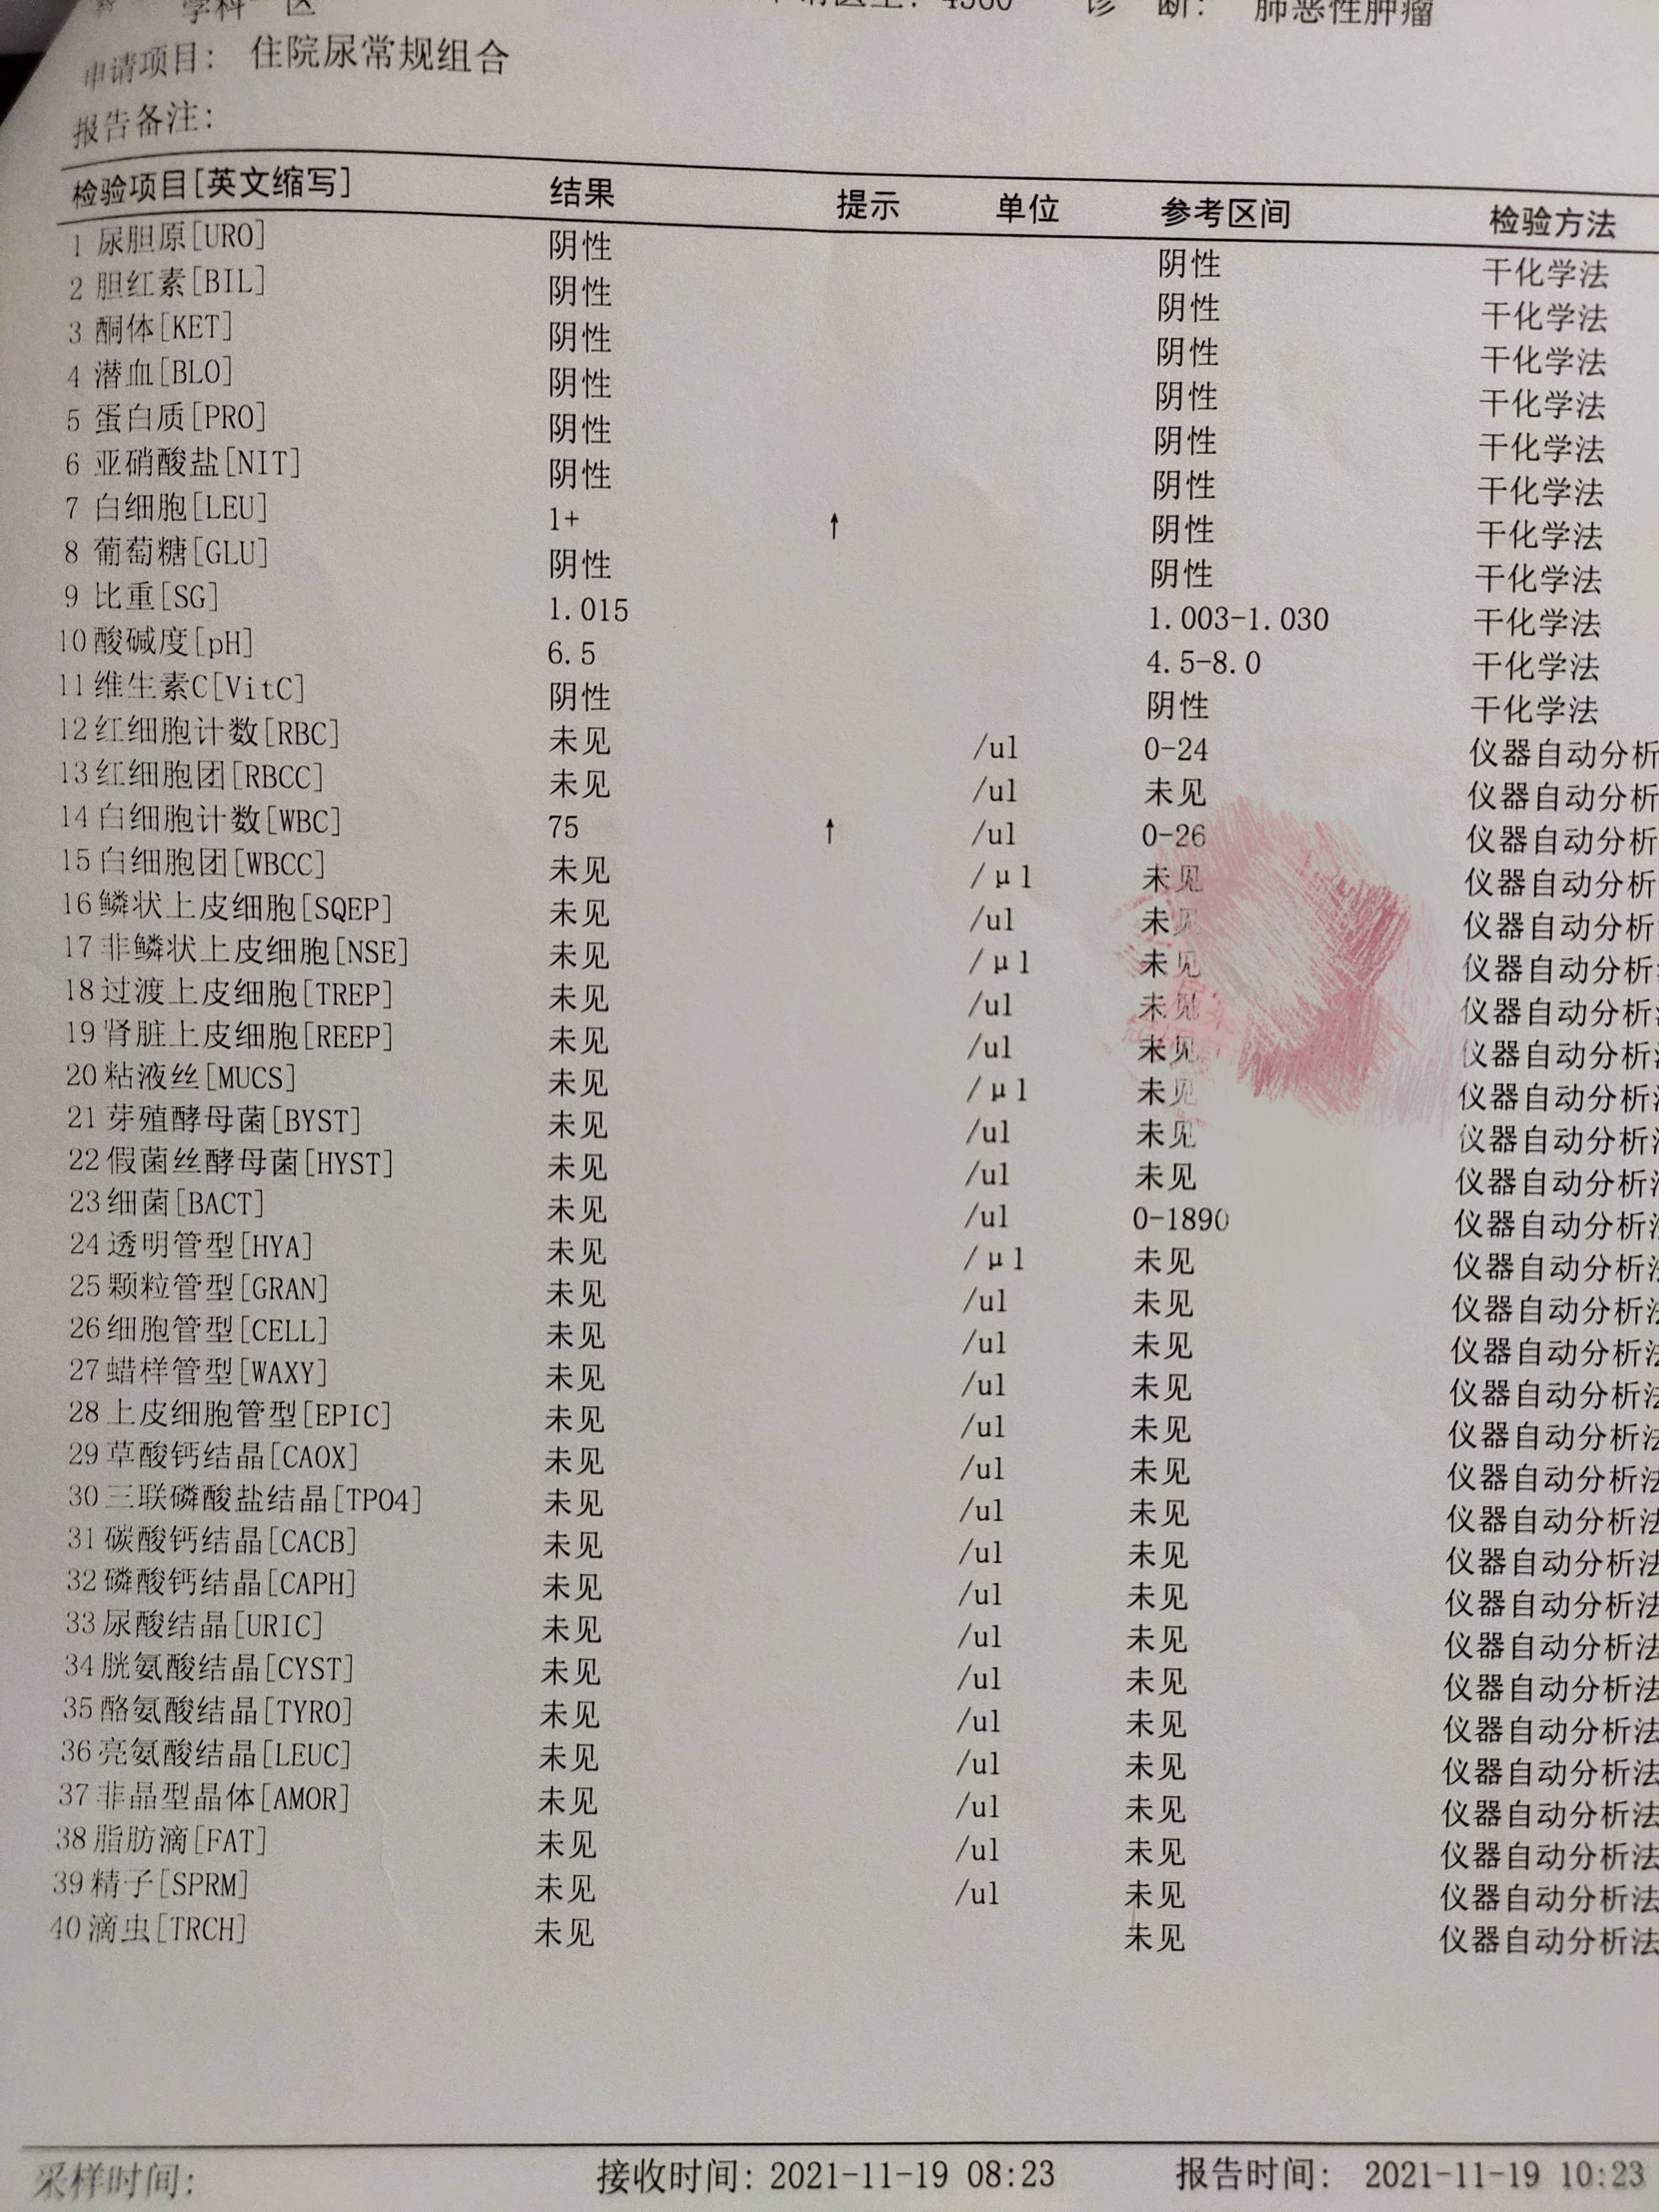 学科一区 诊 断: 肺恶性肿瘤
申请项目: 住院尿常规组合
报告备注:
检验项目[英文缩写] 结果 提示 单位 参考区间 检验方法
1 尿胆原[URO] 阴性 阴性 干化学法
2 胆红素[BIL] 阴性 阴性 干化学法
3 酮体[KET] 阴性 阴性 干化学法
4 潜血[BLO] 阴性 阴性 干化学法
5 蛋白质[PRO] 阴性 阴性 干化学法
6 亚硝酸盐[NIT] 阴性 阴性 干化学法
7 白细胞[LEU] 1+ ↑ 阴性 干化学法
8 葡萄糖[GLU] 阴性 阴性 干化学法
9 比重[SG] 1.015 1.003-1.030 干化学法
10 酸碱度[pH] 6.5 4.5-8.0 干化学法
11 维生素C[VitC] 阴性 阴性 干化学法
12 红细胞计数[RBC] 未见 /ul 0-24 仪器自动分析
13 红细胞团[RBCC] 未见 /ul 未见 仪器自动分析
14 白细胞计数[WBC] 75 ↑ /ul 0-26 仪器自动分析
15 白细胞团[WBCC] 未见 /μl 未见 仪器自动分析
16 鳞状上皮细胞[SQEP] 未见 /ul 未见 仪器自动分析
17 非鳞状上皮细胞[NSE] 未见 /μl 未见 仪器自动分析
18 过渡上皮细胞[TREP] 未见 /ul 未见 仪器自动分析法
19 肾脏上皮细胞[REEP] 未见 /ul 未见 仪器自动分析法
20 粘液丝[MUCS] 未见 /μl 未见 仪器自动分析法
21 芽殖酵母菌[BYST] 未见 /ul 未见 仪器自动分析法
22 假菌丝酵母菌[HYST] 未见 /ul 未见 仪器自动分析法
23 细菌[BACT] 未见 /ul 0-1890 仪器自动分析法
24 透明管型[HYA] 未见 /μl 未见 仪器自动分析法
25 颗粒管型[GRAN] 未见 /ul 未见 仪器自动分析法
26 细胞管型[CELL] 未见 /ul 未见 仪器自动分析法
27 蜡样管型[WAXY] 未见 /ul 未见 仪器自动分析法
28 上皮细胞管型[EPIC] 未见 /ul 未见 仪器自动分析法
29 草酸钙结晶[CAOX] 未见 /ul 未见 仪器自动分析法
30 三联磷酸盐结晶[TPO4] 未见 /ul 未见 仪器自动分析法
31 碳酸钙结晶[CACB] 未见 /ul 未见 仪器自动分析法
32 磷酸钙结晶[CAPH] 未见 /ul 未见 仪器自动分析法
33 尿酸结晶[URIC] 未见 /ul 未见 仪器自动分析法
34 胱氨酸结晶[CYST] 未见 /ul 未见 仪器自动分析法
35 酪氨酸结晶[TYRO] 未见 /ul 未见 仪器自动分析法
36 亮氨酸结晶[LEUC] 未见 /ul 未见 仪器自动分析法
37 非晶型晶体[AMOR] 未见 /ul 未见 仪器自动分析法
38 脂肪滴[FAT] 未见 /ul 未见 仪器自动分析法
39 精子[SPRM] 未见 /ul 未见 仪器自动分析法
40 滴虫[TRCH] 未见 未见 仪器自动分析法
采样时间: 接收时间: 2021-11-19 08:23 报告时间: 2021-11-19 10:23